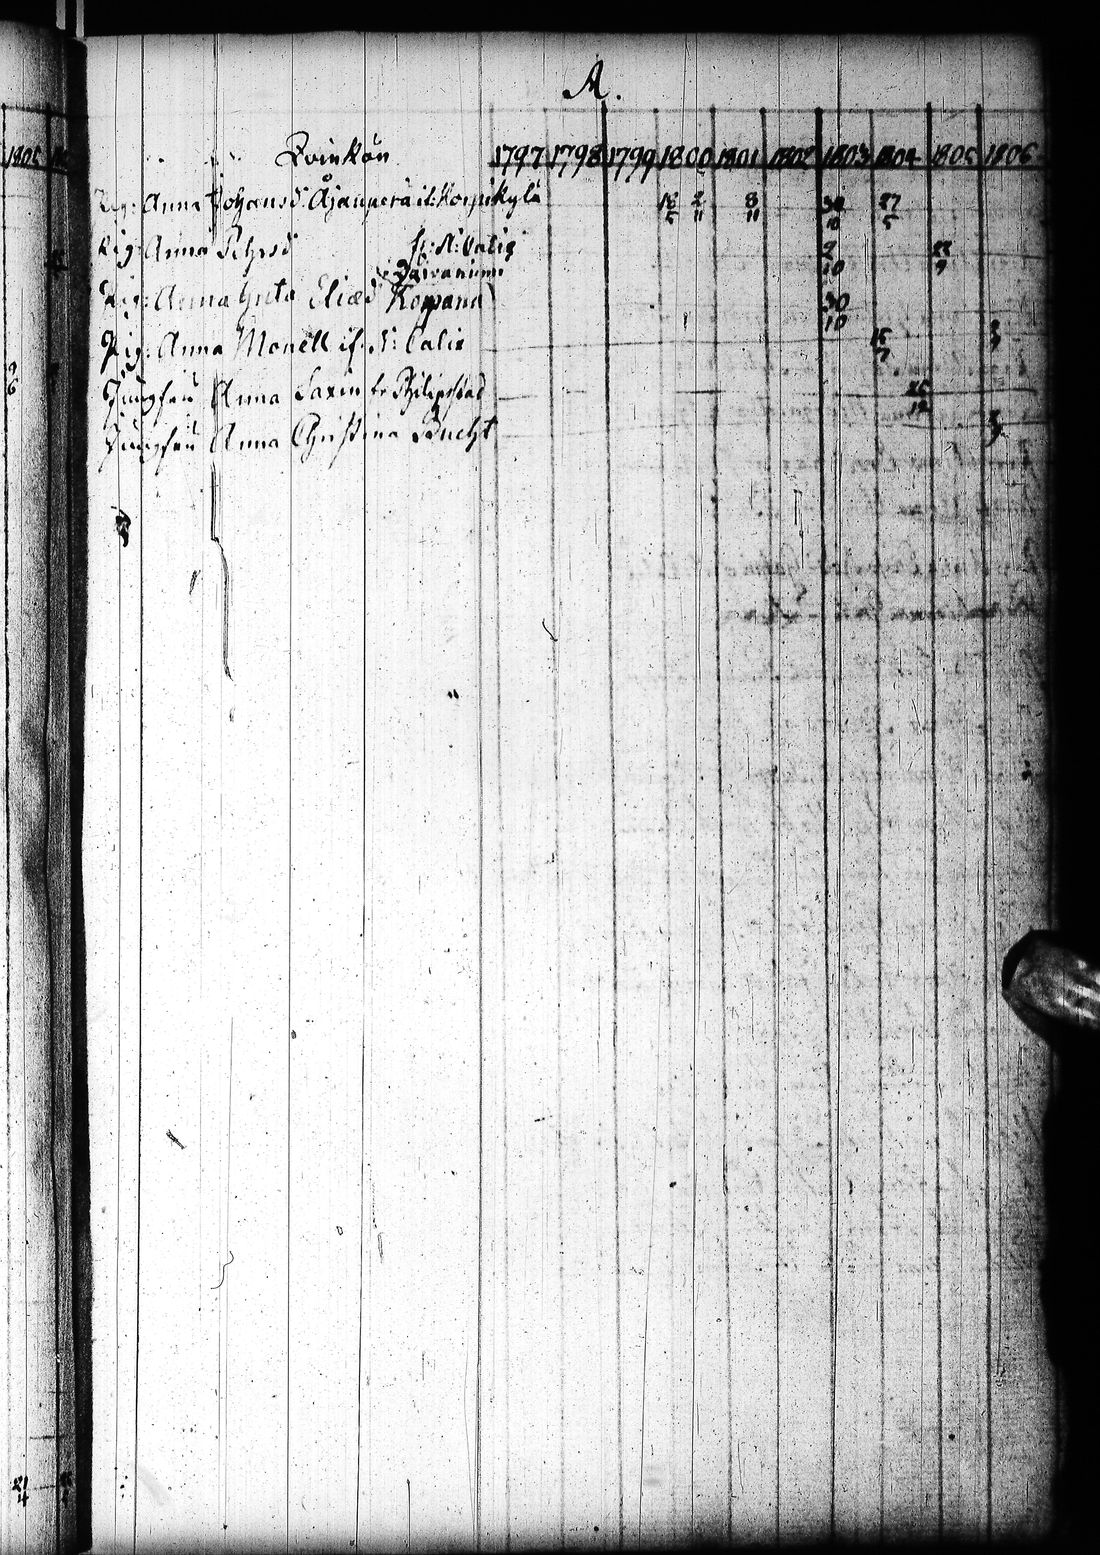 A.
1805
Qvinkön 1797 1798 1799 1800 1801 1802 1803 1804 1805 1806
Pig: Anna Johansd: Äjänperä it: Korpikylä 18/5 2/11 8/11 30/10 27/5
Pig: Anna Pehrsd fr: N: Calix 2/10 22/9
Pig: Anna Greta Eliæd Kompana 30/10
Pig: Anna Monell if. N: Calix 15/7
Jungfru Anna Saxin fr Philipstad 25/12
Jungfru Anna Christina Bucht
21/4